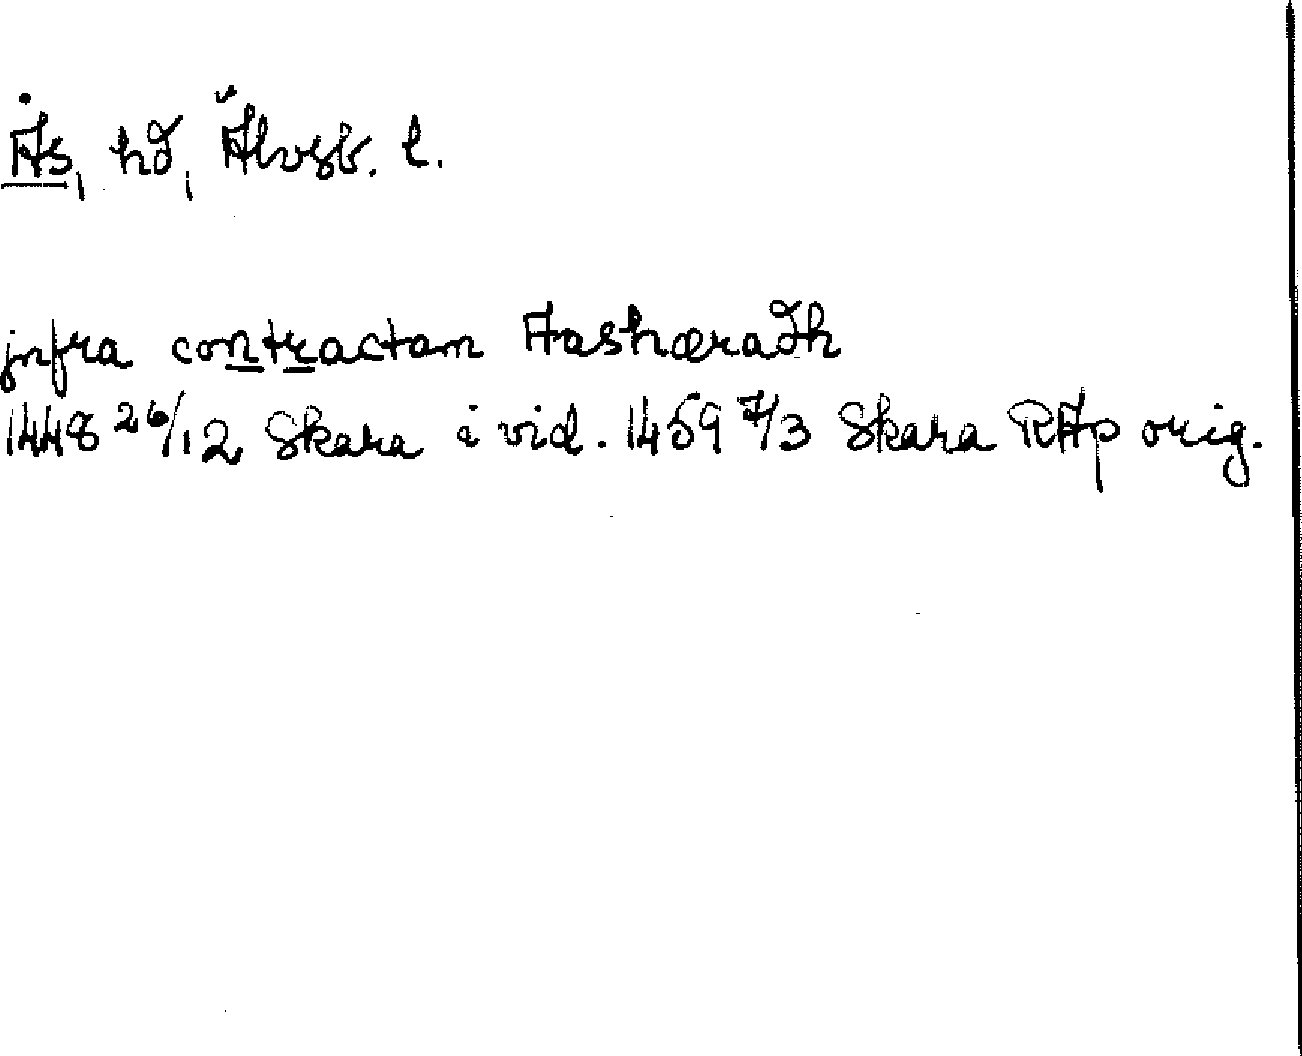 Ås, hd, Älvsb. l.
jnfra contractam Aashæradh
1448 26/12 Skara i vid. 1459 7/3 Skara RAp orig.